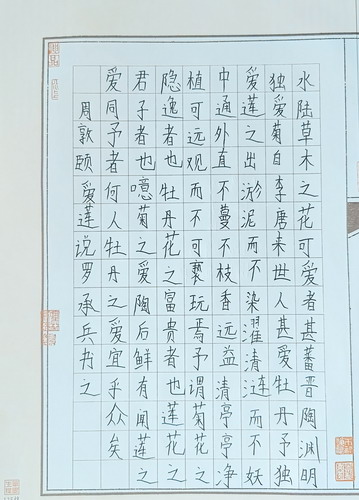 水陆草木之花可爱者甚蕃晋陶渊明
独爱菊自李唐来世人甚爱牡丹予独
爱莲之出淤泥而不染濯清涟而不妖
中通外直不蔓不枝香远益清亭亭净
植可远观而不可亵玩焉予谓菊花之
隐逸者也牡丹花之富贵者也莲花之
君子者也噫菊之爱陶后鲜有闻莲之
爱同予者何人牡丹之爱宜乎众矣
周敦颐爱莲说罗承兵书之